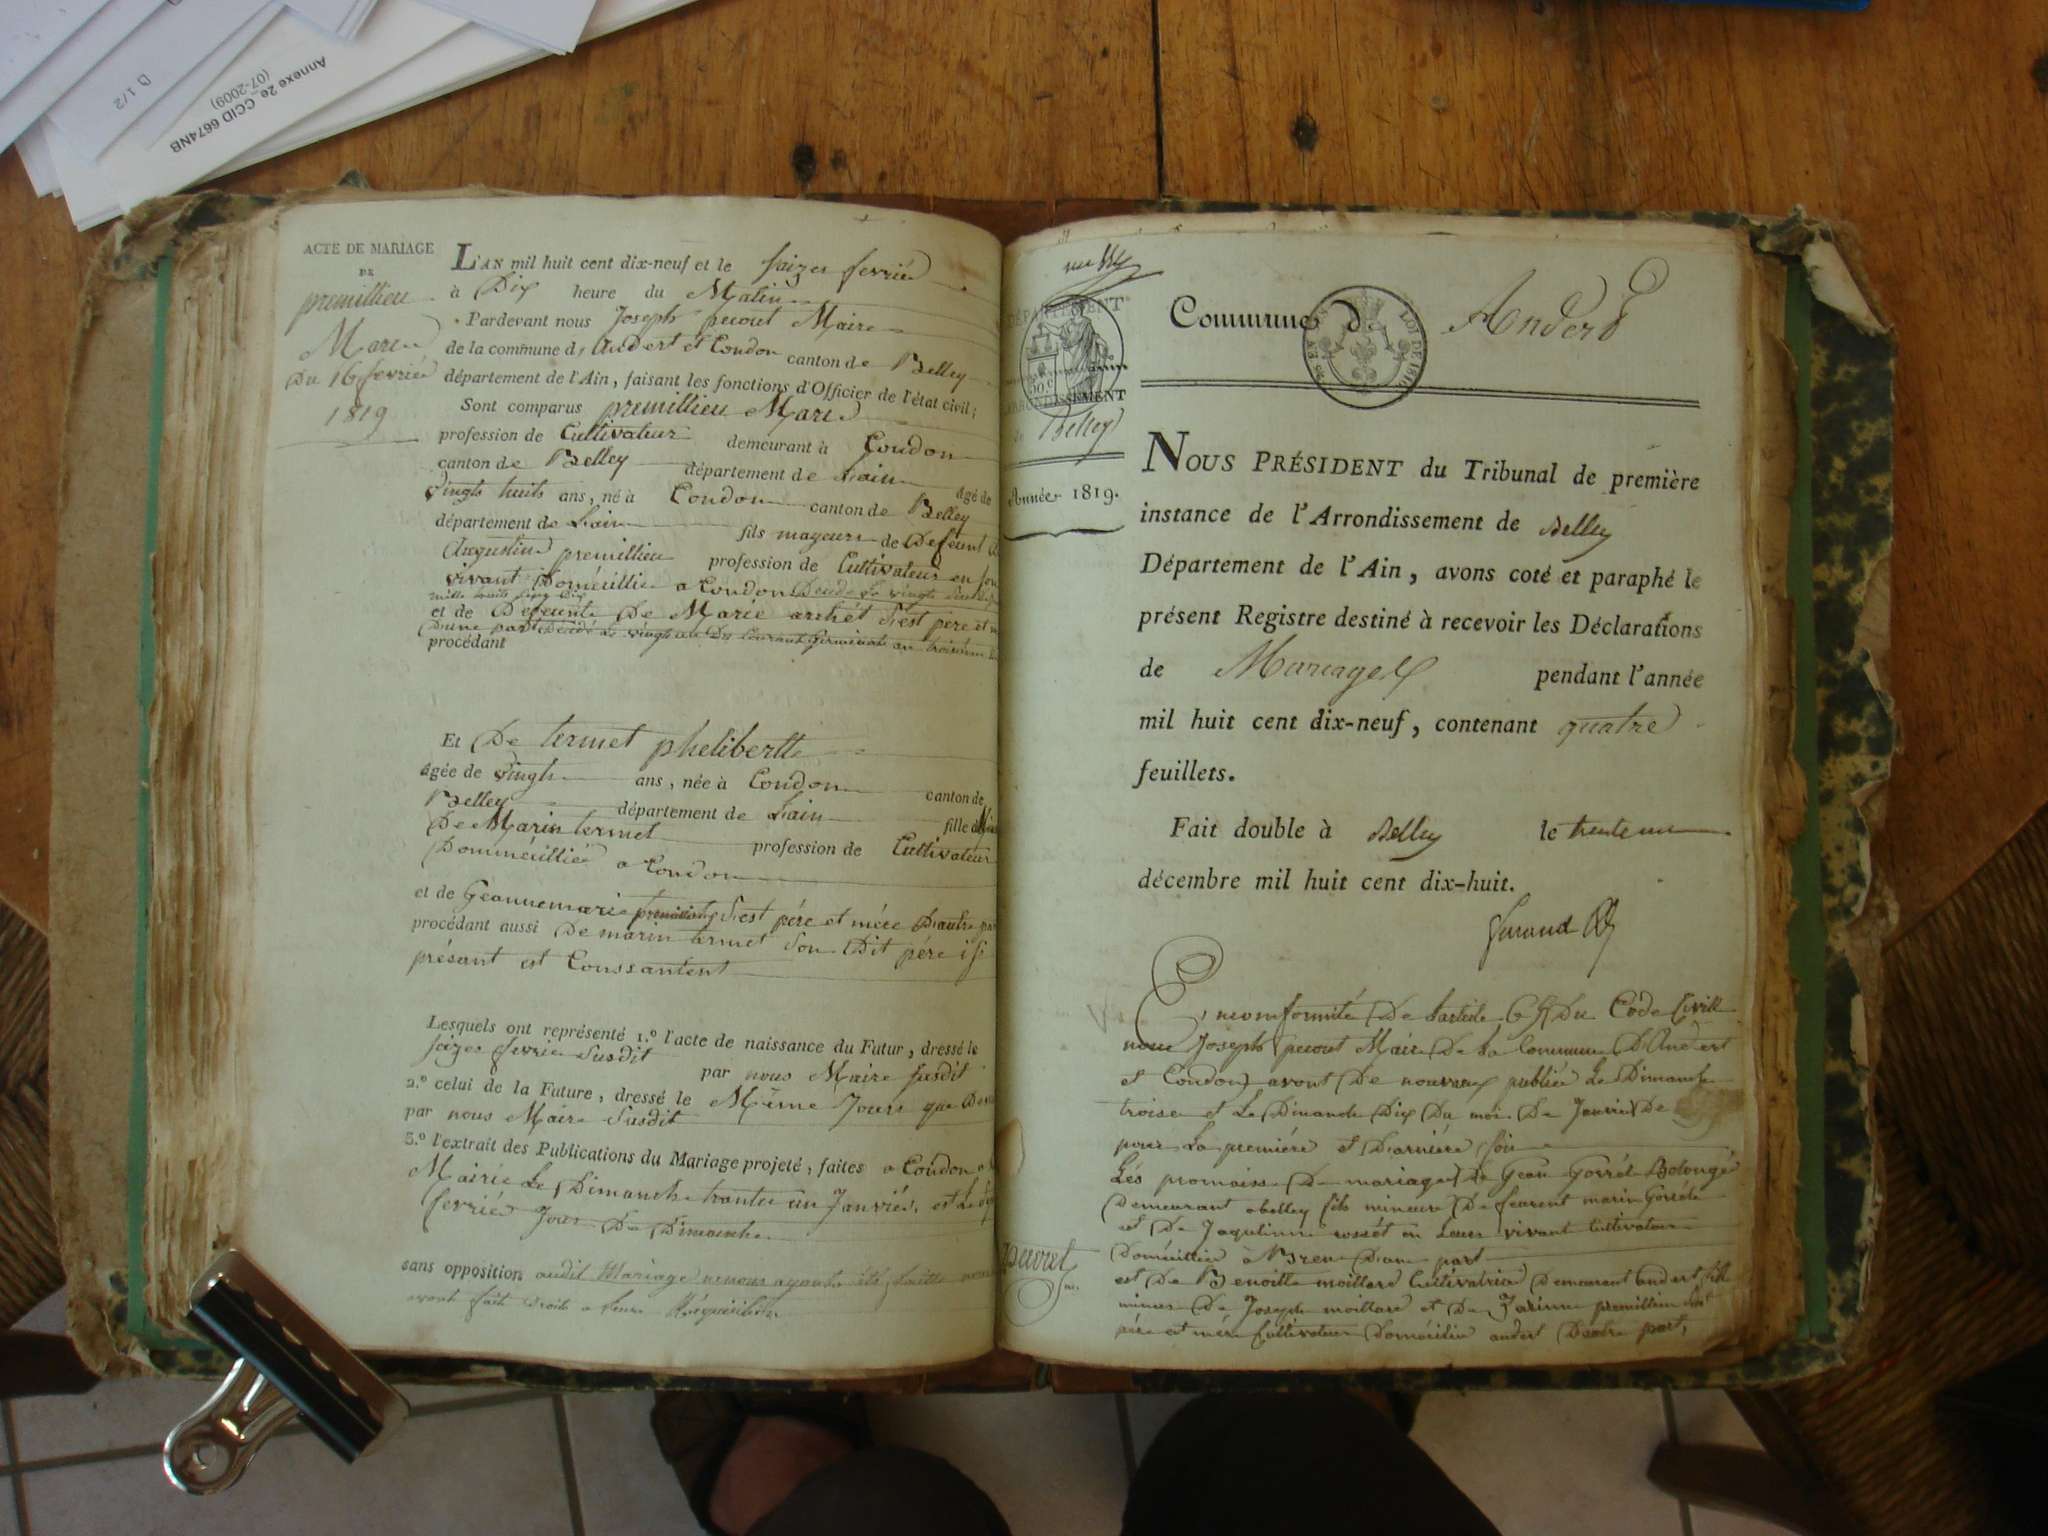 Annexe 2e_CCID 6674NB
(07-2009)
D 1/2
ACTE DE MARIAGE
DE
premillieu
Marie
Du 16 fevrié
1819
L'AN mil huit cent dix-neuf et le saizes fevrié
à Dix heure du Matin
Pardevant nous Joseph pecout Maire
de la commune d, Andert et Condon canton de Belley
département de l'Ain, faisant les fonctions d'Officier de l'état civil;
Sont comparus premillieu Marie
profession de Cultivateur demeurant à Condon
canton de Belley département de Lain âgé de
vingts huits ans, né à Condon canton de Belley
département de Lain fils mayeurs de Defeunt
Augustin premillieu profession de Cultivateur en son
vivant Domicillié a Condon Decidé Le vingts
et de Defeunte De Marie archét S'est pere et
D'une part Decidé Le vingt un Du Courant Germinale an troisième
procédant
Et De termet phelibertte
âgée de vingts ans, née à Condon canton de
Belley département de Lain fille de
De Marin termet profession de Cultivateur
Dommicillié a Condon
et de Geannemarie premillieu S'est pére et mére D'autre part
procédant aussi De marin termet Son Dit pére ici
présant et Conssantent
Lesquels ont représenté 1.º l'acte de naissance du Futur, dressé le
saizes fevrié Susdit par nous Maire susdit
2.º celui de la Future, dressé le Même Jours que
par nous Maire Susdit
3.º l'extrait des Publications du Mariage projeté, faites a Condon
Mairie Le Dimanche trantes un Janvriés, et Le
fevrié Jour De Dimanche
sans opposition audit Mariage nenous ayants été faitte nous
avont fait droits a Leure Réquisition
DÉPARTEMENT
ARRONDISSEMENT
de Belley
Année 1819.
Commune d' Andert
LOI DE 1816
NOUS PRÉSIDENT du Tribunal de première
instance de l'Arrondissement de Belley
Département de l'Ain, avons coté et paraphé le
présent Registre destiné à recevoir les Déclarations
de Mariages pendant l'année
mil huit cent dix-neuf, contenant quatre
feuillets.
Fait double à Belley le trente un
décembre mil huit cent dix-huit.
En conformité De Larticle 63 Du Code Civill
nous Joseph pecout Maire De La Commune D'Andert
et Condon avont De nouveaux publiée Le Dimanche
troise et Le Dimanche Dix Du moi De Janvrié De
pour La premiére et Darniére fois
Lés promaisse De mariage De Gean Gorrél Bolongé
Demeurant abelley fils mineure De feeunt marin Gorréle
et De Jaqulinne rossét en Leurs vivant Cultivateur
Domicillié à Bren D'une part
est De Benoitte moillard Cultivatrice Demeurant andert fille
mineur De Joseph moillard et De premillieu Sest
pére et mére Cultivateur Domicilié andert D'autre part,